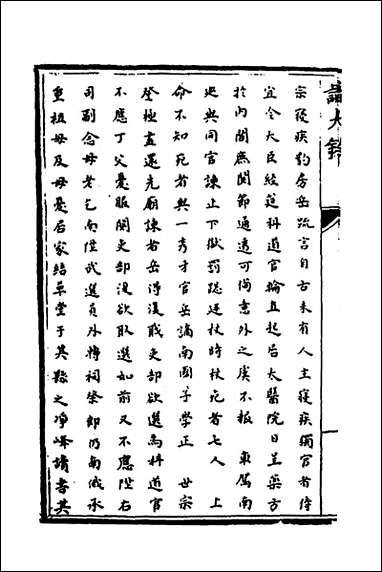 識大錄
宗寢疾豹房岳疏言自古未有人主寢疾獨宦者侍
宜令大臣經筵科道官輪直起居太醫院日呈藥方
於內閣庶關節通透可備意外之虞不報 車駕南
巡與同官諫止下獄罰跪廷杖時杖死者七人 上
命不知死者與一秀才官岳謫南國子學正 世宗
登極盡還先廟諫者岳得復職吏部欲選為科道官
不應丁父憂服闋吏部復欲取選如前又不應陞右
司副念母老乞南陞武選員外轉祠祭郎仍南俄承
重祖母及母憂居家結草堂于其縣之淨峰讀書其